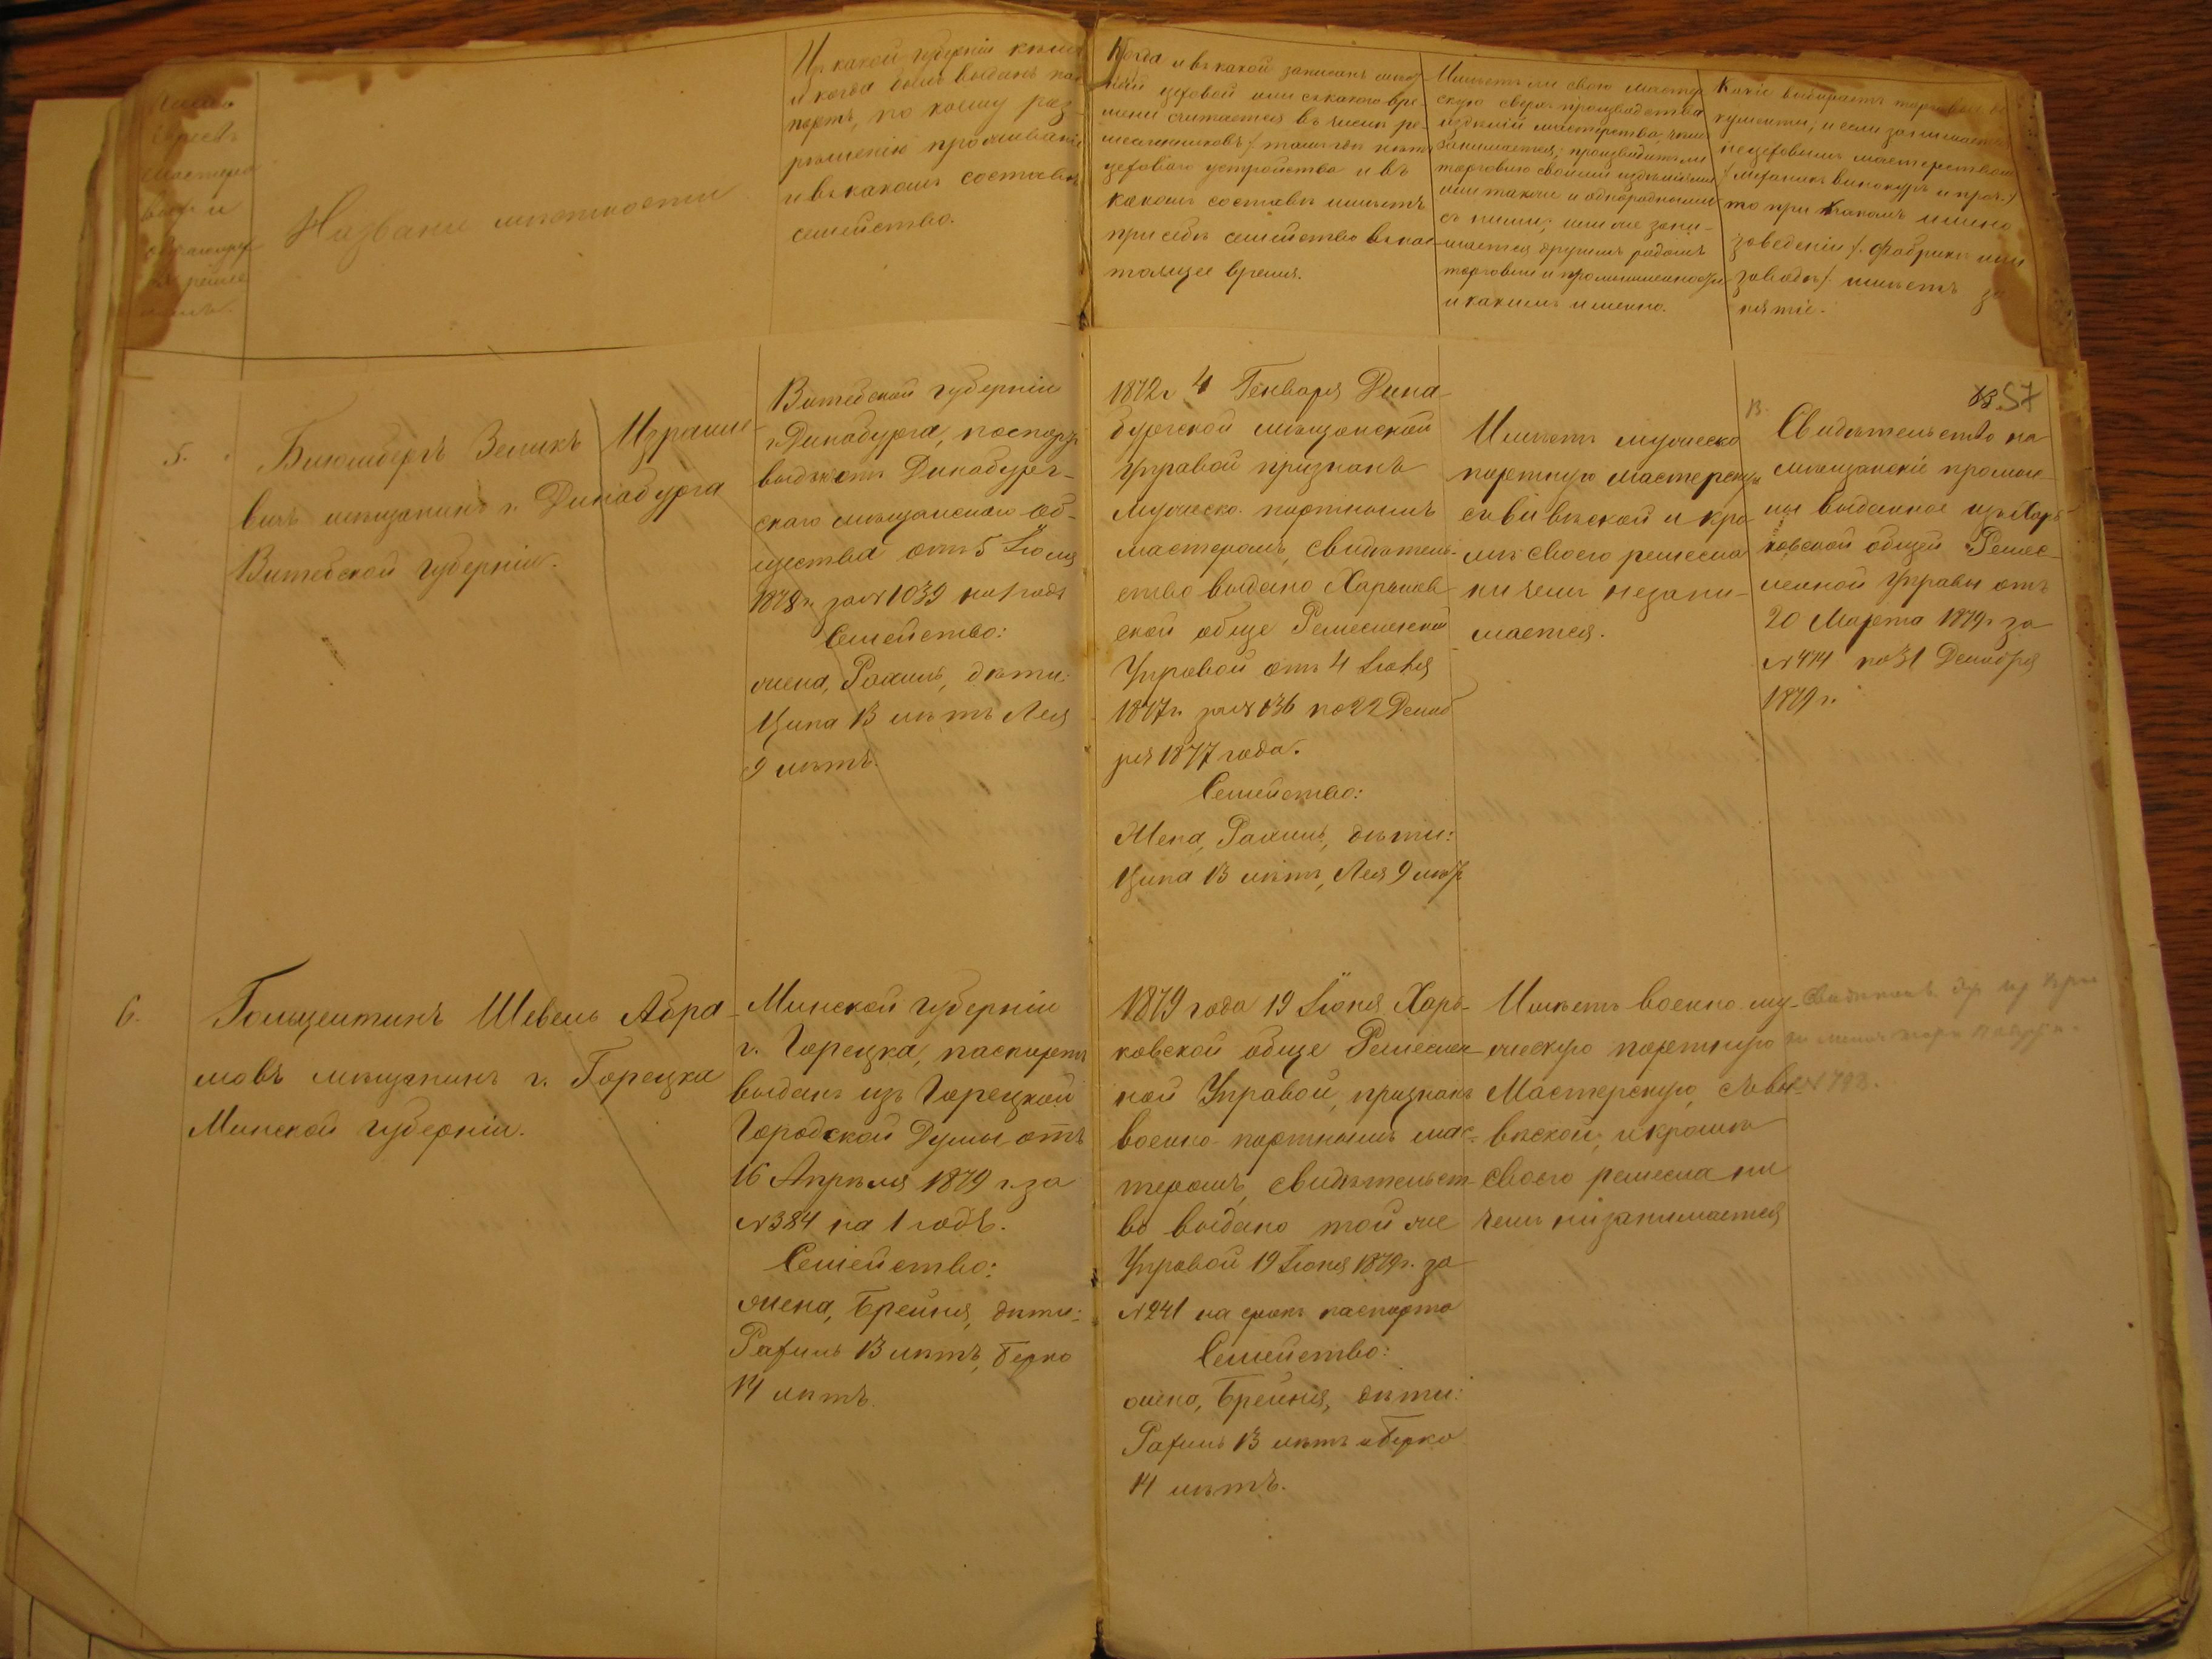 Название мѣстности
Изъ какой губерніи кѣмъ
и когда былъ выданъ пас
портъ, по коему раз-
рѣшенію проживаніе
и въ какомъ составѣ
семейство.
Когда и въ какой записанъ мѣст
ный цеховой или съ какого вре-
мени считается въ числѣ ре-
месленниковъ /тамъ гдѣ нѣтъ
цехового устройства и въ
какомъ составѣ имѣетъ
при себѣ семейство въ нас-
тоящее время.
Имѣетъ ли свою мастер
скую сверхъ производства
издѣлій мастерства, чѣмъ
занимается; производитъ ли
торговлю своими издѣліями
или также и однородными
съ ними; или же зани-
мается другимъ родомъ
торговли и промышленности
и какимъ именно.
Какіе выбираетъ торговые до
кументы; и если занимается
нецеховымъ мастерствомъ
/Механикъ винокуръ и проч./
то при какомъ именно
заведеніи /. фабрикѣ или
заводѣ/. имѣетъ за
нятіе.
57
5.
Блюмбергъ Зеликъ Израиле
вичъ мѣщанинъ г. Динабурга
Витебской губерніи.
Витебской губерніи
г. Динабурга, паспортъ
выданъ отъ Динабург-
скаго мѣщанскаго об-
щества отъ 5 Іюля
1878 г. за № 1039 на 1 годъ
Семейство:
жена, Рахиль, дѣти:
Ципа 13 лѣтъ Лея
9 лѣтъ.
1872 г 4 Генваря Дина
бургской мѣщанской
Управой признанъ
Мужеско. портнымъ
мастеромъ, свидѣтель-
ство выдано Харьков
ской обще Ремесленной
Управой отъ 4 Іюля
1877 г. за № 136 по 22 Декаб
ря 1877 года.
Семейство:
Жена, Рахиль, дѣти:
Ципа 13 лѣтъ, Лея 9 лѣтъ
Имѣетъ мужеско
портную мастерскую
съ вывѣской и кро
мѣ своего ремесла
ничемъ незани-
мается.
Свидѣтельство на
мѣщанскіе промыс-
лы выданное изъ Харь
ковской общей Ремес-
ленной Управы отъ
20 Марта 1879 г. за
№ 474 по 31 Декабря
1879 г.
6.
Гольцентинъ Шевель Абра
мовъ мѣщанинъ г. Горецка
Минской губерніи.
Минской губерніи
г. Горецка, паспортъ
выданъ изъ Горецкой
Городской Думы отъ
16 Апрѣля 1879 г. за
№ 384 на 1 годъ.
Семейство:
жена, Брейня, дѣти:
Рафиль 13 лѣтъ, Берко
14 лѣтъ.
1879 года 19 Іюня Харь-
ковской обще Ремеслен
ной Управой, признанъ
военно портнымъ мас-
теромъ, свидѣтельст-
во выдано той же
Управой 19 Іюня 1879 г. за
№ 241 на срокъ паспорта
Семейство:
жена, Брейня, дѣти:
Рафиль 13 лѣтъ и Берко
14 лѣтъ.
Имѣетъ военно му-
жескую портную
Мастерскую, съ вы-
вѣской; и кромѣ
своего ремесла ни
чемъ низанимается